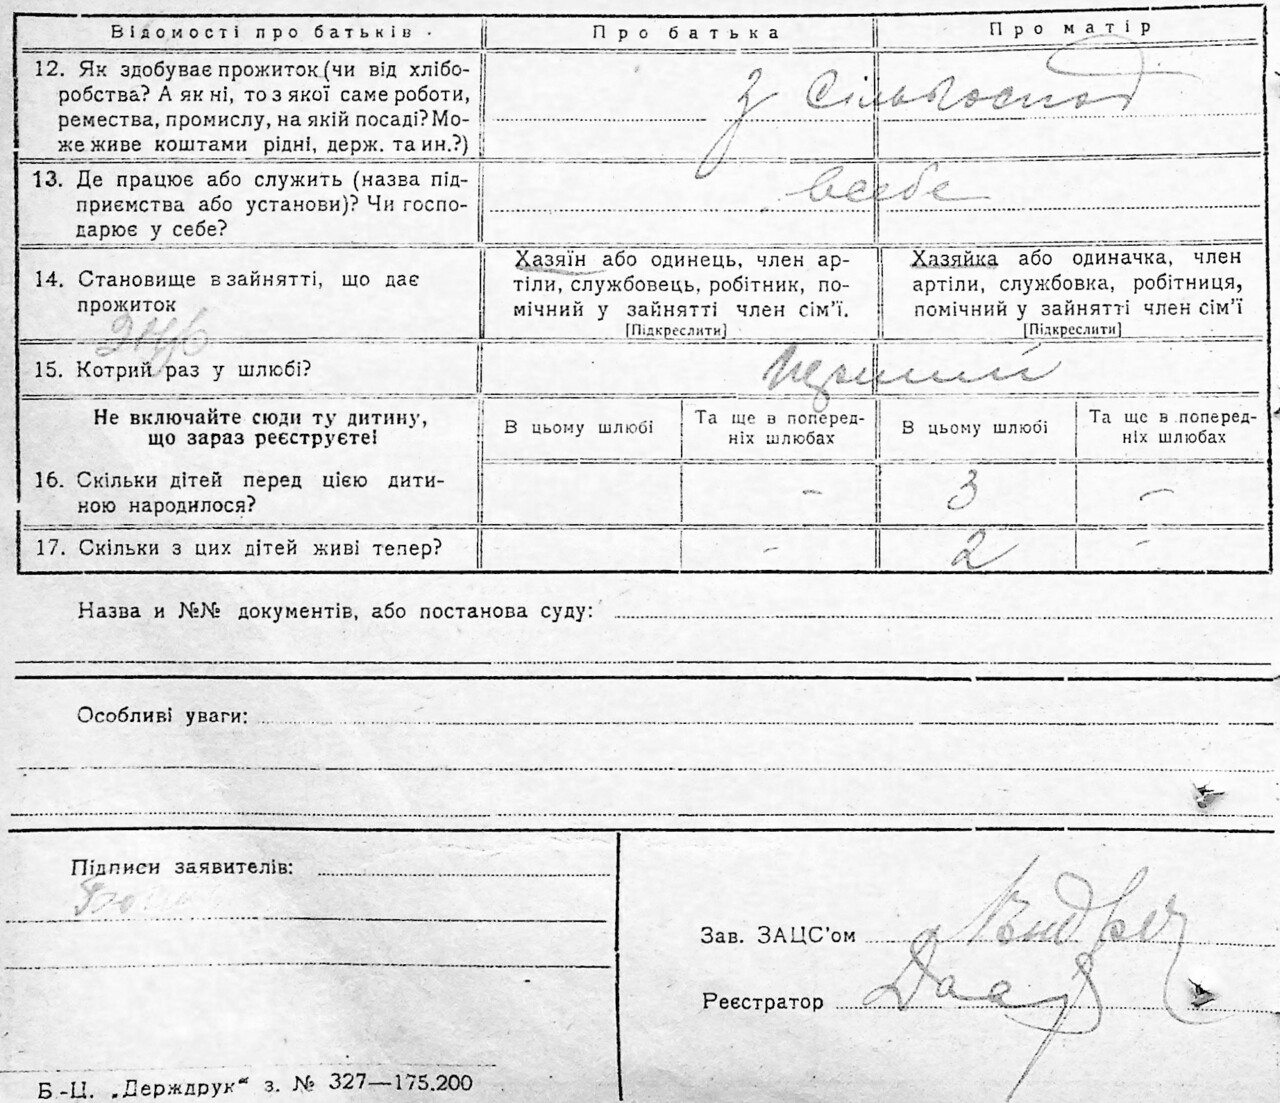 Відомості про батьків Про батька Про матір
12. Як здобуває прожиток (чи від хлібо-
робства? А як ні, то з якої саме роботи,
ремества, промислу, на якій посаді? Мо-
же живе коштами рідні, держ. та ин.?)
з Сільгоспод
13. Де працює або служить (назва під-
приємства або установи)? Чи госпо-
дарює у себе?
всебе
14. Становище в зайнятті, що дає
прожиток
Хазяїн або одинець, член ар-
тіли, службовець, робітник, по-
мічний у зайнятті член сім’ї.
[Підкреслити]
Хазяйка або одиначка, член
артіли, службовка, робітниця,
помічний у зайнятті член сім’ї
[Підкреслити]
15. Котрий раз у шлюбі?
Перший
Не включайте сюди ту дитину,
що зараз реєструєте!
В цьому шлюбі
Та ще в поперед-
ніх шлюбах
В цьому шлюбі
Та ще в поперед-
ніх шлюбах
16. Скільки дітей перед цією дити-
ною народилося?
- 3 -
17. Скільки з цих дітей живі тепер? - 2 -
Назва и №№ документів, або постанова суду:
Особливі уваги:
Підписи заявителів:
Зав. ЗАЦС’ом
Реєстратор
Б.-Ц. „Держдрук“ з. № 327—175.200